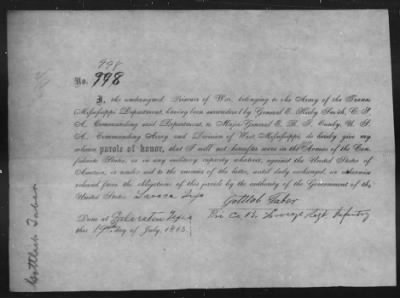 998
No. 998
I, the undersigned, Prisoner of War, belonging to the Army of the Trans-
Mississippi Department, having been surrendered by General E. Kirby Smith, C. S.
A., Commanding said Department, to Major General E. R. S. Canby, U. S.
A., Commanding Army and Division of West Mississippi, do hereby give my
solemn parole of honor, that I will not hereafter serve in the Armies of the Con-
federate States, or in any military capacity whatever, against the United States of
America, or render aid to the enemies of the latter, until duly exchanged, or otherwise
released from the obligations of this parole by the authority of the Government of the
United States. Lavaca Texas
Gottlob Gaber
Done at Texas
this day of July, 1865.
Pri Co Regt Infantry
Gottlob Gaber